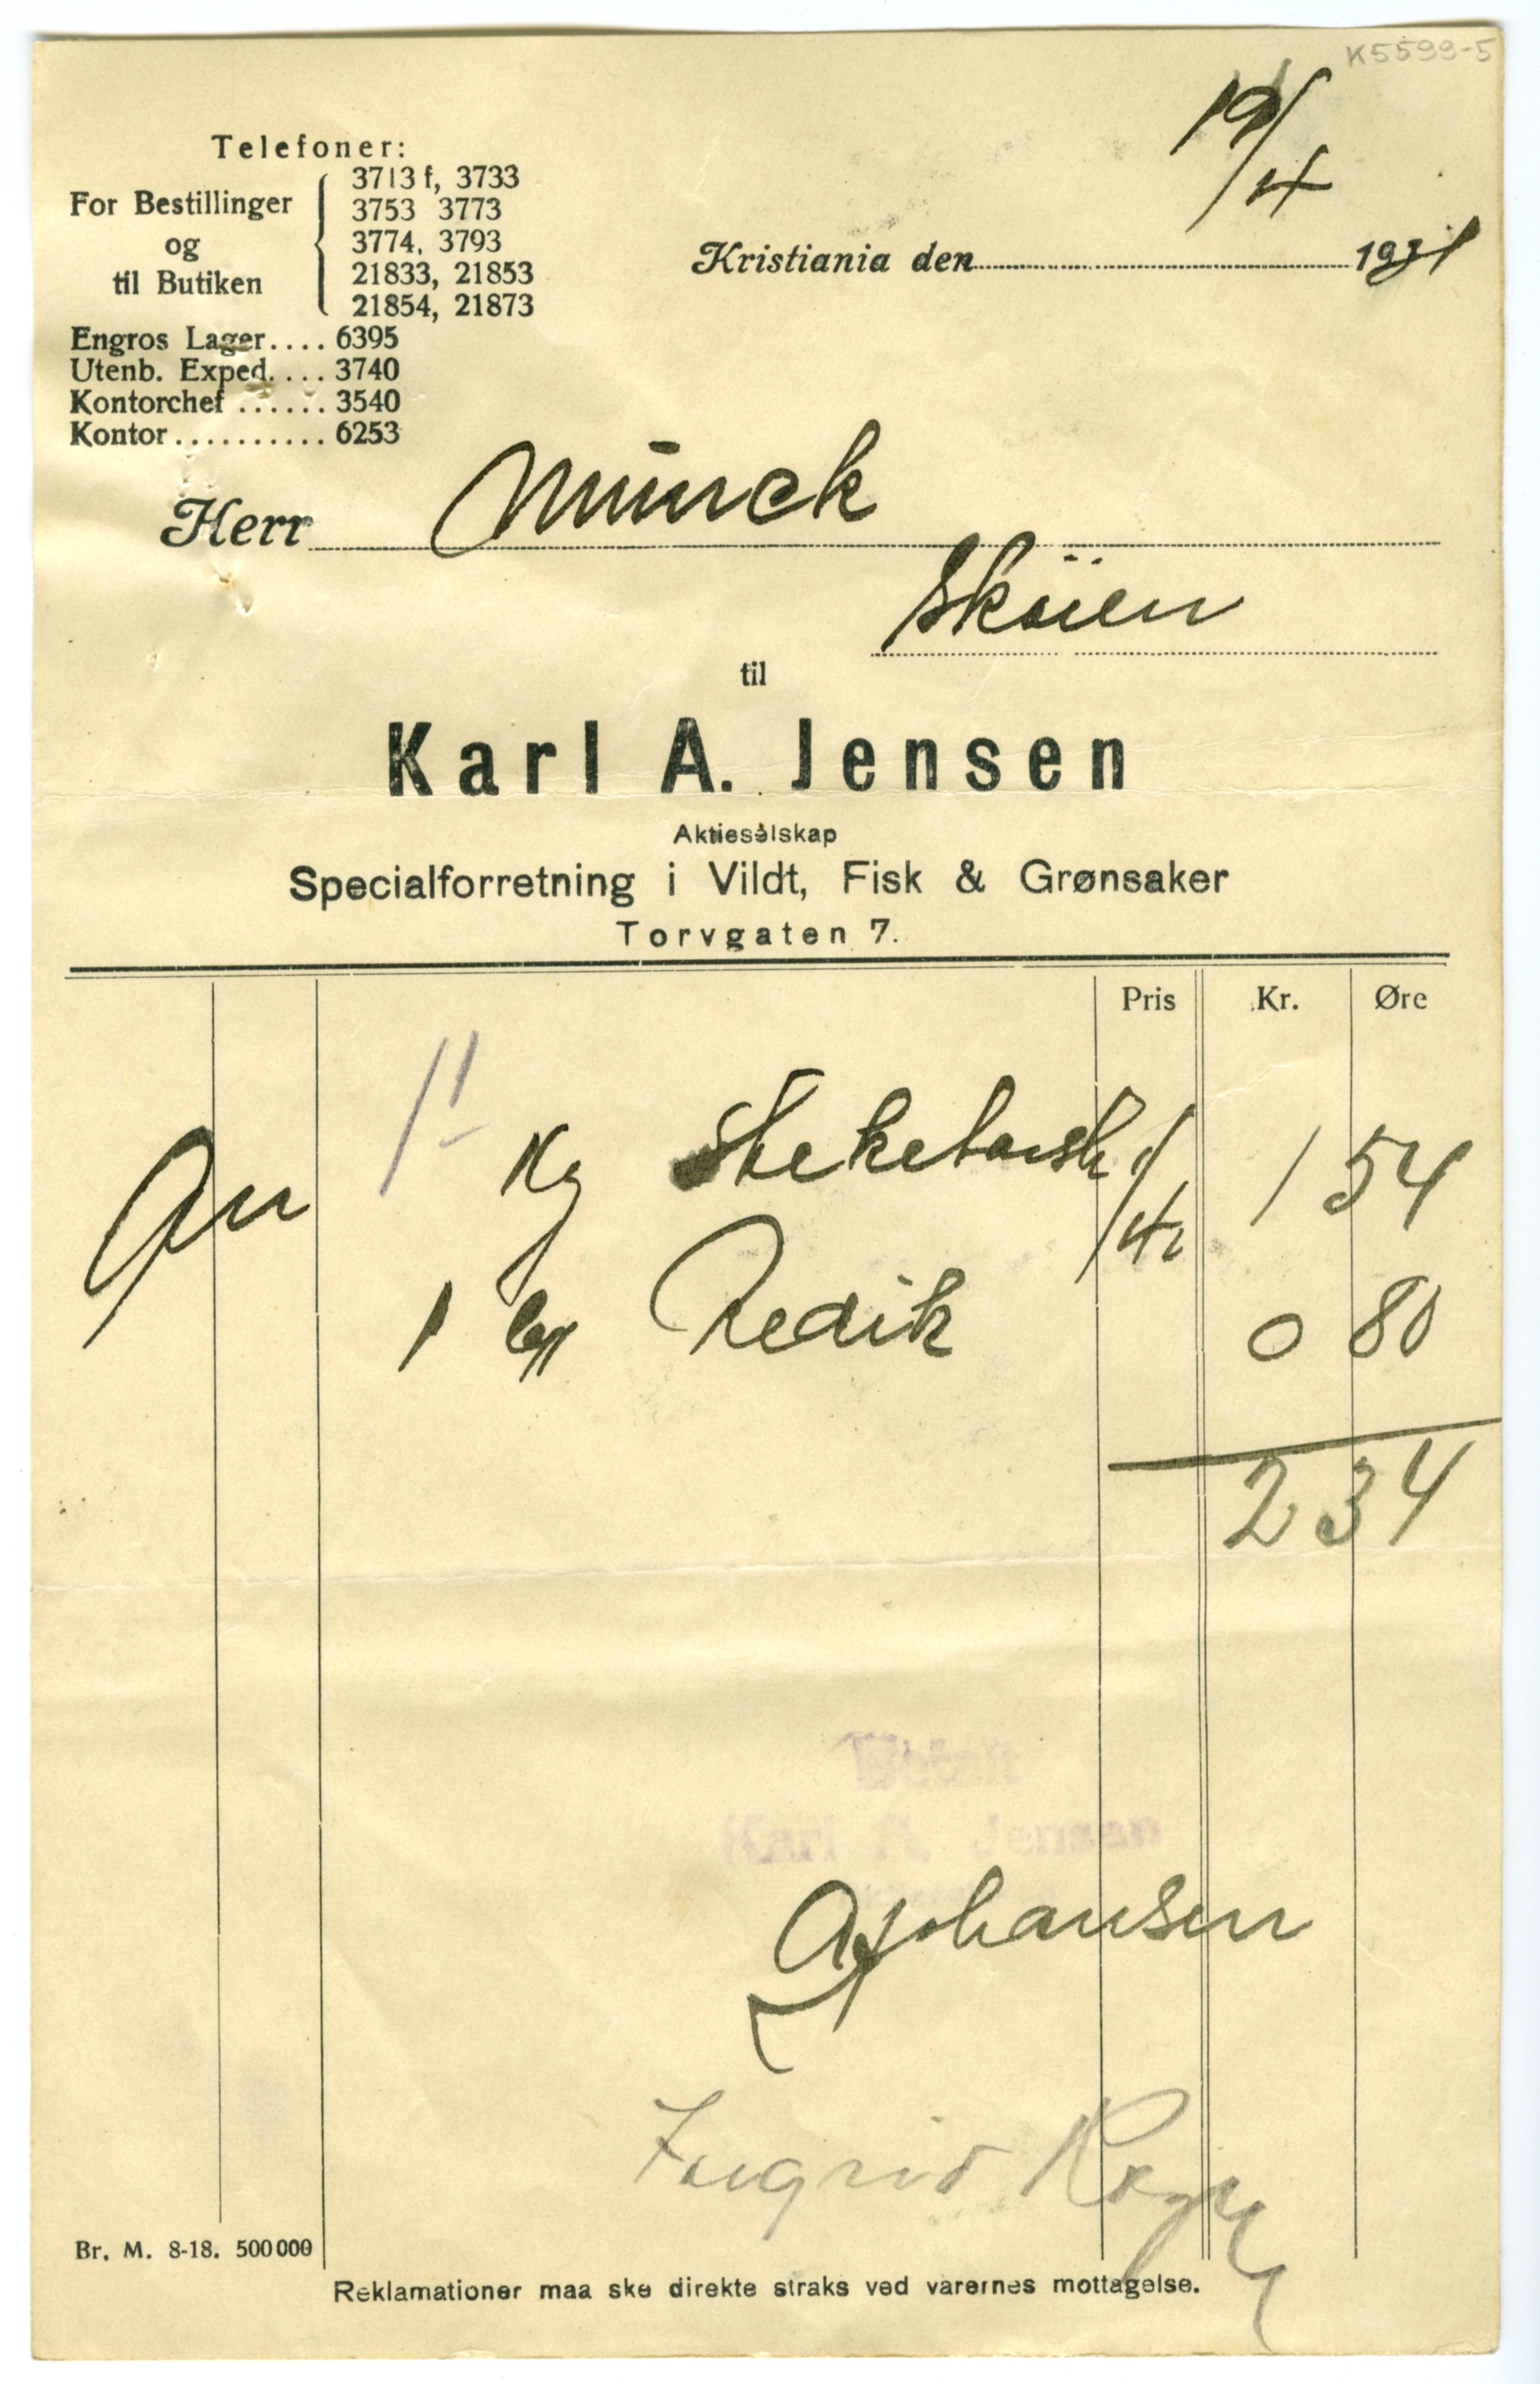 K5599-5
19/4
Telefoner:
For Bestillinger og til Butiken
3713 f, 3733
3753 3773
3774, 3793
21833, 21853
21854, 21873
Kristiania den 1921
Engros Lager.... 6395
Utenb. Exped.... 3740
Kontorchef ...... 3540
Kontor.......... 6253
Herr Munck
Sköien
til
Karl A. Jensen
Aktieselskap
Specialforretning i Vildt, Fisk & Grønsaker
Torvgaten 7.
Pris Kr. Øre
Kg Steketorsk 1 54
1 Redik 0 80
2 34
Betalt
Karl A. Jensen
A Johansen
Ingrid
Br. M. 8-18. 500000
Reklamationer maa ske direkte straks ved varernes mottagelse.